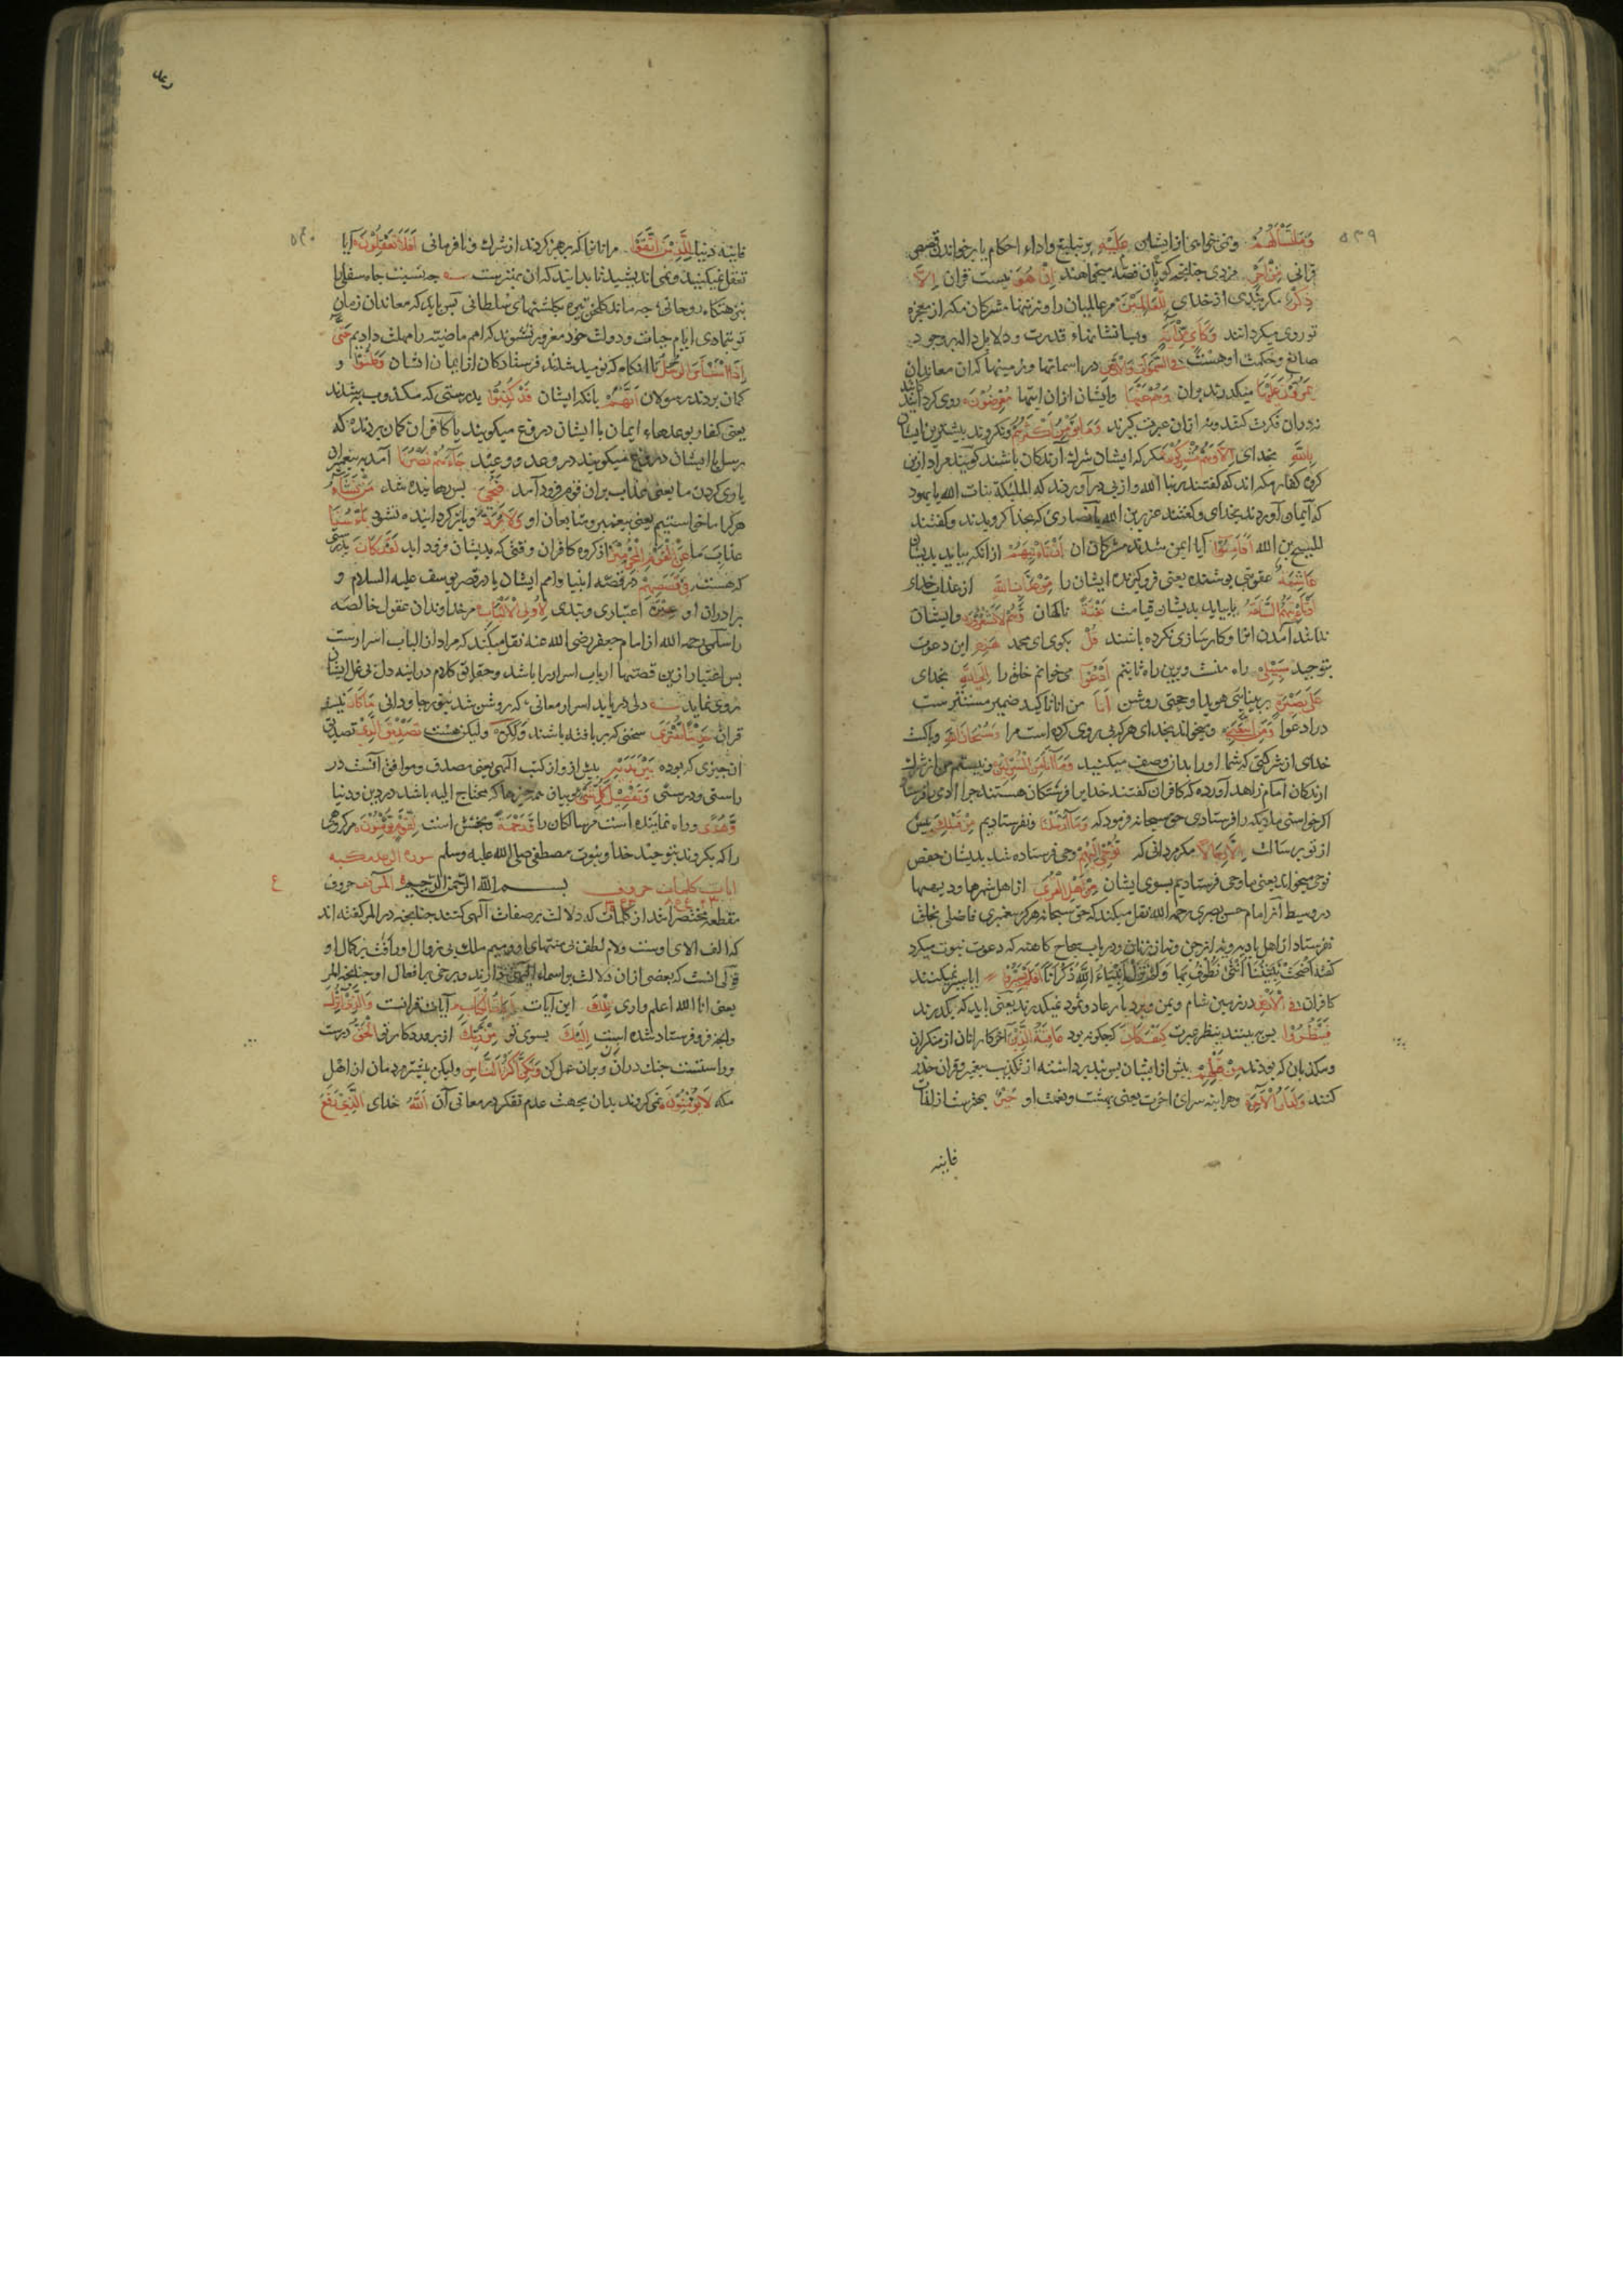 ۵۳۹
وَمَا تَسْأَلُهُمْ ونمی خواهی از ایشان عَلَيْهِ بر تبلیغ واداء احکام یا بر خواندن قصص
قرانی مِنْ اَجْرٍ مزدی چنانچه کویان قصه میخواهند اِنْ هُوَ نیست قران اِلَّا
ذِكْرٌ مکر پندی از خدای لِلْعَالَمِينَ مر عالمیان را ونه تنها مشرکان مکه از معجزه
تو روی میکردانند وَكَأَيِّنْ مِنْ آيَةٍ وبسا نشانهاء قدرت ودلایل داله بر وجود
صانع وحکمت او هست فِي السَّمٰوَاتِ وَالْأَرْضِ در اسمانها ودر زمینها که ان معاندان
يَمُرُّونَ عَلَيْهَا میکذرند بران وَهُمْ عَنْهَا وایشان ازان ایتها مُعْرِضُونَ روی کردانند
نه دران فکرت کنند ونه ازان عبرت کیرند وَمَا يُؤْمِنُ أَكْثَرُهُمْ ونکروند بیشترین ایشان
بِاللّٰهِ بخدای اِلَّا وَهُمْ مُشْرِكُونَ مکر که ایشان شرک ارندکان باشند کویند مراد ازین
کروه کفار مکه اند که کفتند ربنا الله وازپی در آوردند که الملئکة بنات الله یا یهود
که آیمان آوردند بخدای وکفتند عزیر بن الله یا نصاری که بخدا کرویدند وکفتند
المسیح بن الله اَفَأَمِنُوا آیا ایمن شدند مشرکان ان أَنْ تَأْتِيَهُمْ ازانکه بیاید بدیشان
غَاشِيَةٌ عقوبتی پوشنده یعنی فروکیرنده ایشان را مِنْ عَذَابِ اللّٰهِ از عذاب خدای
أَوْ تَأْتِيَهُمُ السَّاعَةُ یا بیاید بدیشان قیامت بَغْتَةً ناکهان وَهُمْ لَا يَشْعُرُونَ وایشان
ندانند آمدن انرا وکار سازی نکرده باشند قُلْ بکوی ای محمد هٰذِهِ این دعوت
بتوحید سَبِيلِي راه منست وبرین راه ثابتم أَدْعُوا می خوانم خلق را اِلَى اللّٰهِ بخدای
عَلٰى بَصِيرَةٍ بر بینایی هویدا وحجتی روشن أَنَا من انا تاکید ضمیر مستتر ست
در ادعوا وَمَنِ اتَّبَعَنِي ومیخواند بخدای هرکه پی روی کرده است مرا وَسُبْحَانَ اللّٰهِ وپاکست
خدای از شرکتی که شما اورا بدان وصف میکنید وَمَا أَنَا مِنَ الْمُشْرِكِينَ ونیستم من از شرک
ارندکان امام زاهد آورده که کافران کفتند خدایرا فرشتکان هستند چرا آدمی را فرستاد
اکر خواستی ملایکه را فرستادی حق سبحانه فرمود که وَمَا أَرْسَلْنَا ونفرستادیم مِنْ قَبْلِكَ پیش
از تو برسالت اِلَّا رِجَالًا مکر مردانی که نُوحِي إِلَيْهِمْ وحی فرستاده شد بدیشان حفص
نوحی میخواند یعنی ما وحی فرستادیم بسوی ایشان مِنْ أَهْلِ الْقُرٰى از اهل شهرها ودیهها
در وسیط آنرا امام حسن بصری رحمه الله نقل میکند که حق سبحانه هرکز پیغمبری
نفرستاد از اهل بادیه ونه از جن ونه از زنان ودر باب سجاح کاهنه که دعوت نبوت میکرد
کفته اند اضحت نبیتنا انثی نطوف بها ولم تزل انبیاء الله ذکرانا اَفَلَمْ يَسِيرُوا ایا سیر نمیکنند
کافران فِي الْأَرْضِ در زمین شام ویمن وبر دیار عاد وثمود نمیکذرند یعنی باید که بکذرند
فَيَنْظُرُوا پس به بینند بنظر عبرت كَيْفَ كَانَ که چکونه بود عَاقِبَةُ الَّذِينَ آخر کار انان از منکران
ومکذبان که بودند مِنْ قَبْلِهِمْ پیش از ایشان پس پند برداشته از تکذیب پیغمبر وقران حذر
کنند وَلَدَارُ الْآخِرَةِ وهراینه سرای اخرت یعنی بهشت ونعمت او خَيْرٌ بهترست از لذات
فانیه
۵۴۰
فانیه دنیا لِلَّذِينَ اتَّقَوْا مر انانرا که پرهیز کردند از شرک ونافرمانی أَفَلَا تَعْقِلُونَ آیا
تعقل نمیکنید ونمی اندیشید تا بدانید که ان بهترست چه نسبت جاه سفلی را
بنزهتکاه روحانی چه ماند کلخن تیره بکلشنهای سلطانی پس باید که معاندان زمان
تو بتمادی ایام حیات ودولت خود مغرور نشوند که امم ماضیه را مهلت دادیم حَتّٰى
إِذَا اسْتَيْأَسَ الرُّسُلُ تا انکاه که نومید شدند فرستادکان از ایمان ایشان وَظَنُّوا و
کمان بردند رسولان أَنَّهُمْ بانکه ایشان قَدْ كُذِبُوا بدرستی که مکذوب شدند
یعنی کفار بوعدهاء ایمان با ایشان دروغ میکویند یا کافران کمان بردند که
رسل با ایشان دروغ میکویند در وعد ووعید جَاءَهُمْ نَصْرُنَا آمد به پیغمبران
یاری کردن ما یعنی عذاب بران قوم فرود آمد فَنُجِّيَ پس رهانیده شد مَنْ نَشَاءُ
هرکرا ما خواستیم یعنی پیغمبر ومتابعان او وَلَا يُرَدُّ وباز کردانیده نشود بَأْسُنَا
عذاب ما عَنِ الْقَوْمِ الْمُجْرِمِينَ از کروه کافران وقتی که بدیشان فرود اید لَقَدْ كَانَ بدرستی
که هست فِي قَصَصِهِمْ در قصه انبیا وامم ایشان یا در قصه یوسف علیه السلام و
برادران او عِبْرَةٌ اعتباری وپندی لِأُولِي الْأَلْبَابِ مر خداوندان عقول خالصه
را سلمی رحمه الله از امام جعفر رضی الله عنه نقل میکند که مراد از الباب اسرارست
پس اعتبار ازین قصتها ارباب اسرار را باشد وحقایق کلام در اینه دل بی غل ایشان
روی نماید دلی دریابد اسرار معانی که روشن شد بنور جاودانی مَا كَانَ نیست
قران حَدِيثًا يُفْتَرٰى سخنی که بر بافته باشند وَلٰكِنْ ولیکن هست تَصْدِيقَ الَّذِي تصدیق
ان چیزی که بوده بَيْنَ يَدَيْهِ پیش ازو از کتب آلهی یعنی مصدق وموافق آنست در
راستی ودرستی وَتَفْصِيلَ كُلِّ شَيْءٍ وبیان همه چیزها که محتاج الیه باشد در دین ودنیا
وَهُدًى وراه نماینده است مر سالکان را وَرَحْمَةً وبخشش است لِقَوْمٍ يُؤْمِنُونَ مر کروهی
را که بکروند بتوحید خدا ونبوت مصطفی صلی الله علیه وسلم سورة الرعد مکیه
ایات کلمات حروف بسم الله الرحمن الرحیم المر حروف
مقطعه مختصر اند از کلمات که دلالت بر صفات آلهی کنند چنانچه در المر کفته اند
که الف الای اوست ولام لطف بی منتهای او ومیم ملک بی زوال او ورا رافت بر کمال او
قولی انست که بعضی ازان دلالت بر اسماء آلهی دارند وبرخی بر افعال او چنانچه المر
یعنی انا الله اعلم واری تِلْكَ این آیات آيَاتُ الْكِتَابِ آیات قرانست وَالَّذِي أُنْزِلَ
وانچه فرو فرستاده شده است إِلَيْكَ بسوی تو مِنْ رَبِّكَ از پروردکار تو الْحَقُّ درست
وراستست چنک دران زن وبران عمل کن وَلٰكِنَّ أَكْثَرَ النَّاسِ ولیکن بیشتر مردمان از اهل
مکه لَا يُؤْمِنُونَ نمی کروند بدان بجهت عدم تفکر در معانی آن اَللّٰهُ خدای الَّذِي رَفَعَ